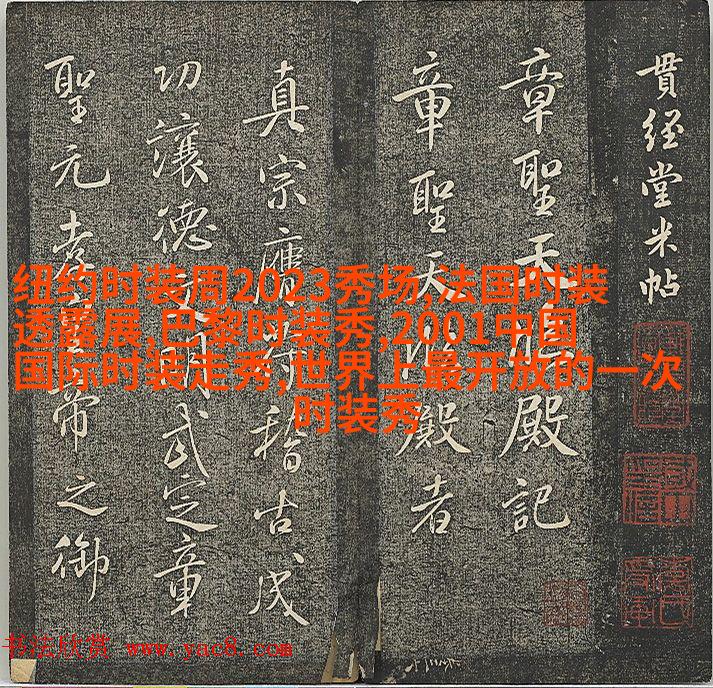 貫經堂米帖
章聖天后殿記
章聖天后殿者
真宗膺符稽古成
功讓德文明武定章
聖元孝皇帝之御
纽约时装周2023秀场,法国时装
透露展,巴黎时装秀,2001中国
国际时装走秀,世界上最开放的一次
时装秀
书法欣赏 www.yac8.com